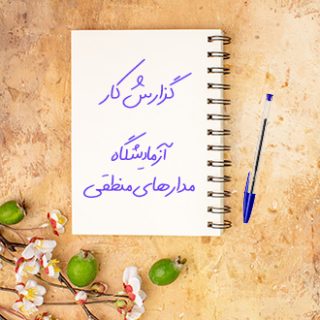 گزارش کار
آزمایشگاه
مدارهای منطقی